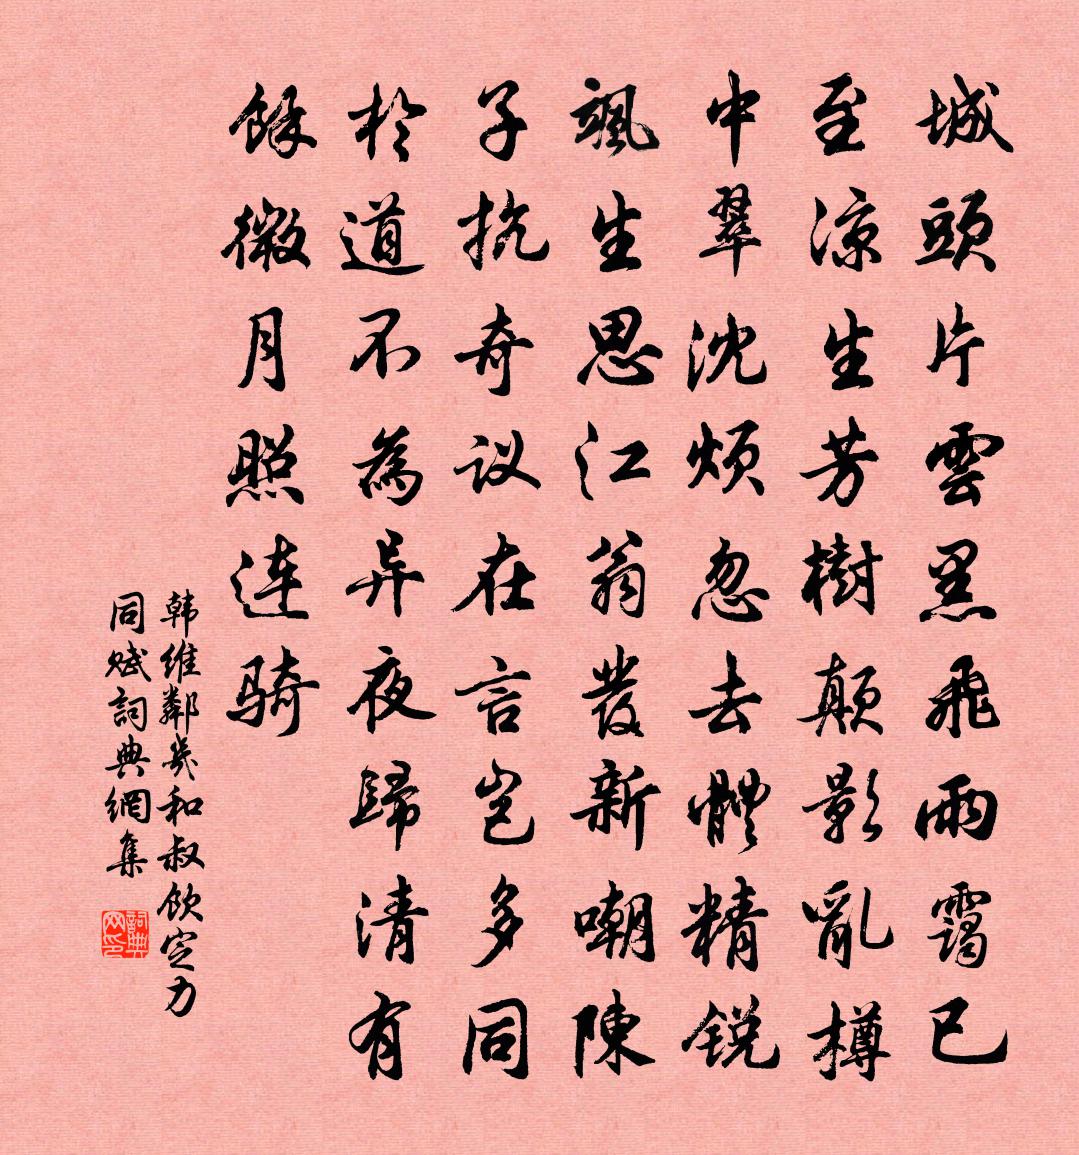 城頭片雲黑飛雨靄已
至涼生芳樹顛影亂樽
中翠沈煩忽去體精銳
颯生思江翁發新嘲陳
子抗奇议在言豈多同
於道不為异夜歸清有
餘微月照连骑
韩維鄰幾和叔飲定力
同赋詞典網集
詞典网印